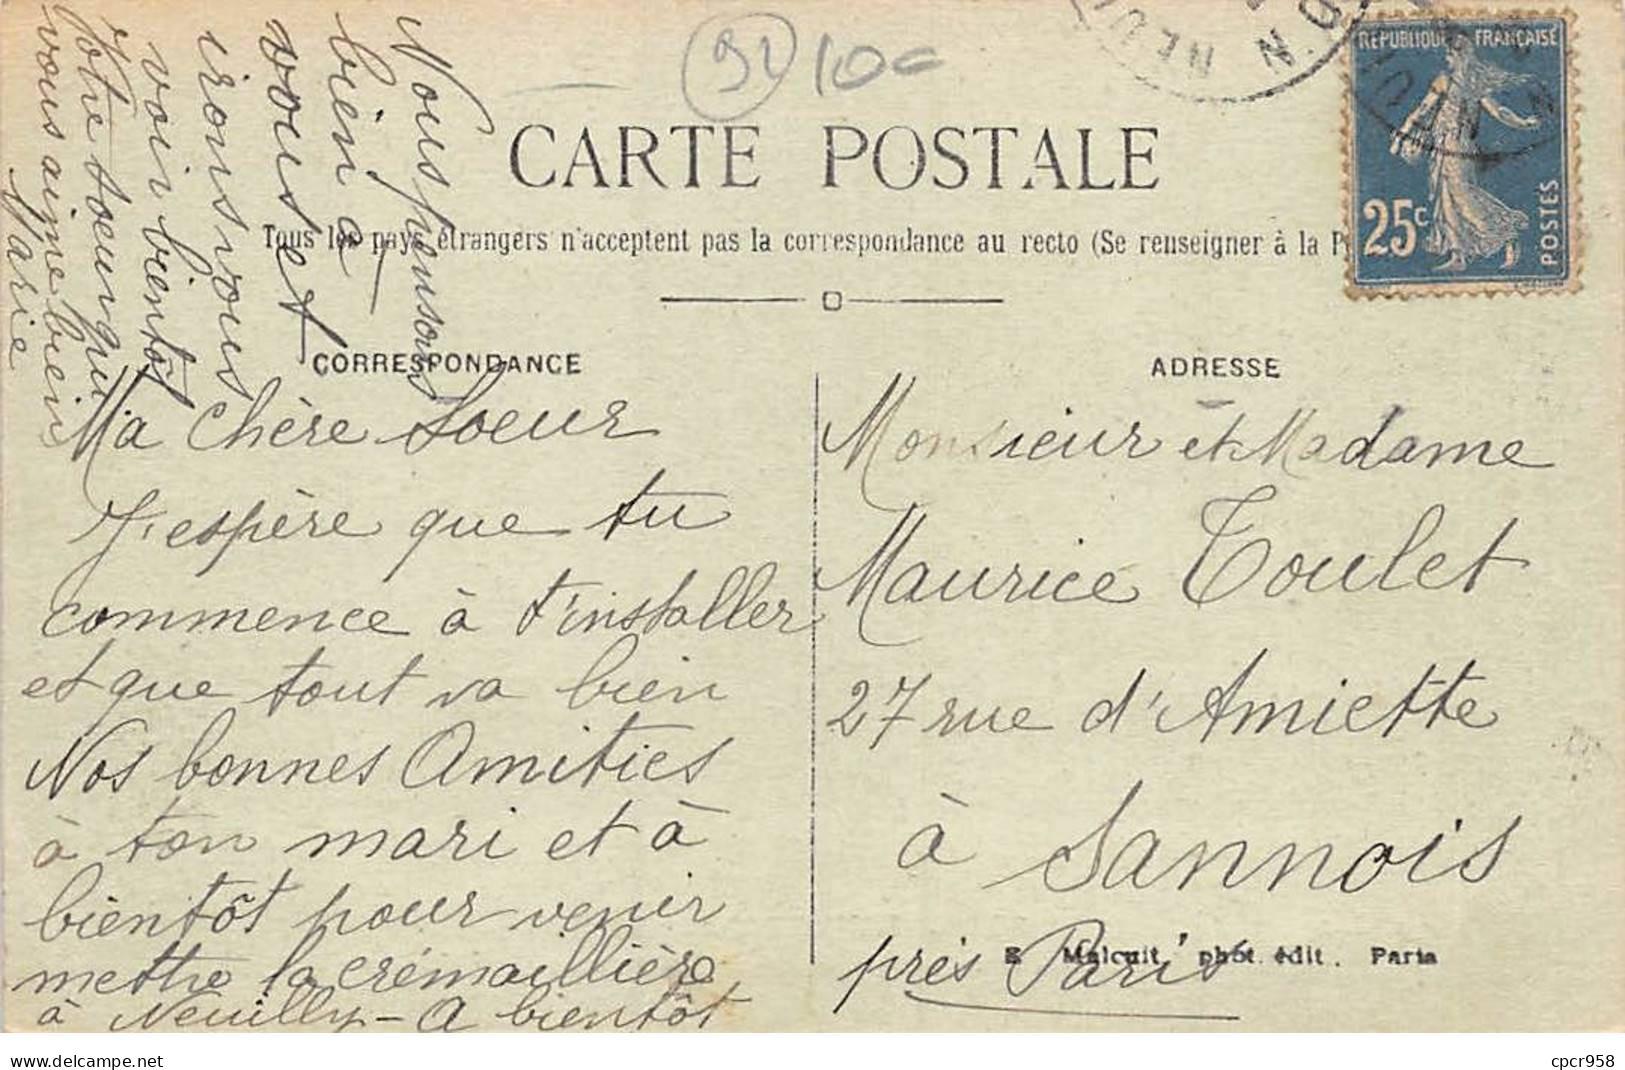 92 10c
REPUBLIQUE FRANÇAISE
25c
POSTES
CARTE POSTALE
Tous les pays étrangers n'acceptent pas la correspondance au recto (Se renseigner à la P
CORRESPONDANCE
ADRESSE
Ma chère Soeur
J'espère que tu
commence à t'installer
et que tout va bien
Nos bonnes Amitiés
à ton mari et à
bientôt pour venir
mettre la crémaillière
à Neuilly - A bientôt
Nous pensons
bien à
vous et
irons vous
voir bientôt
Votre soeur qui
vous aime bien
Marie
Monsieur et Madame
Maurice Toulet
27 rue d'Amiette
à Sannois
près Paris
E Malcuit, phot. édit. Paris
www.delcampe.net
cpcr958